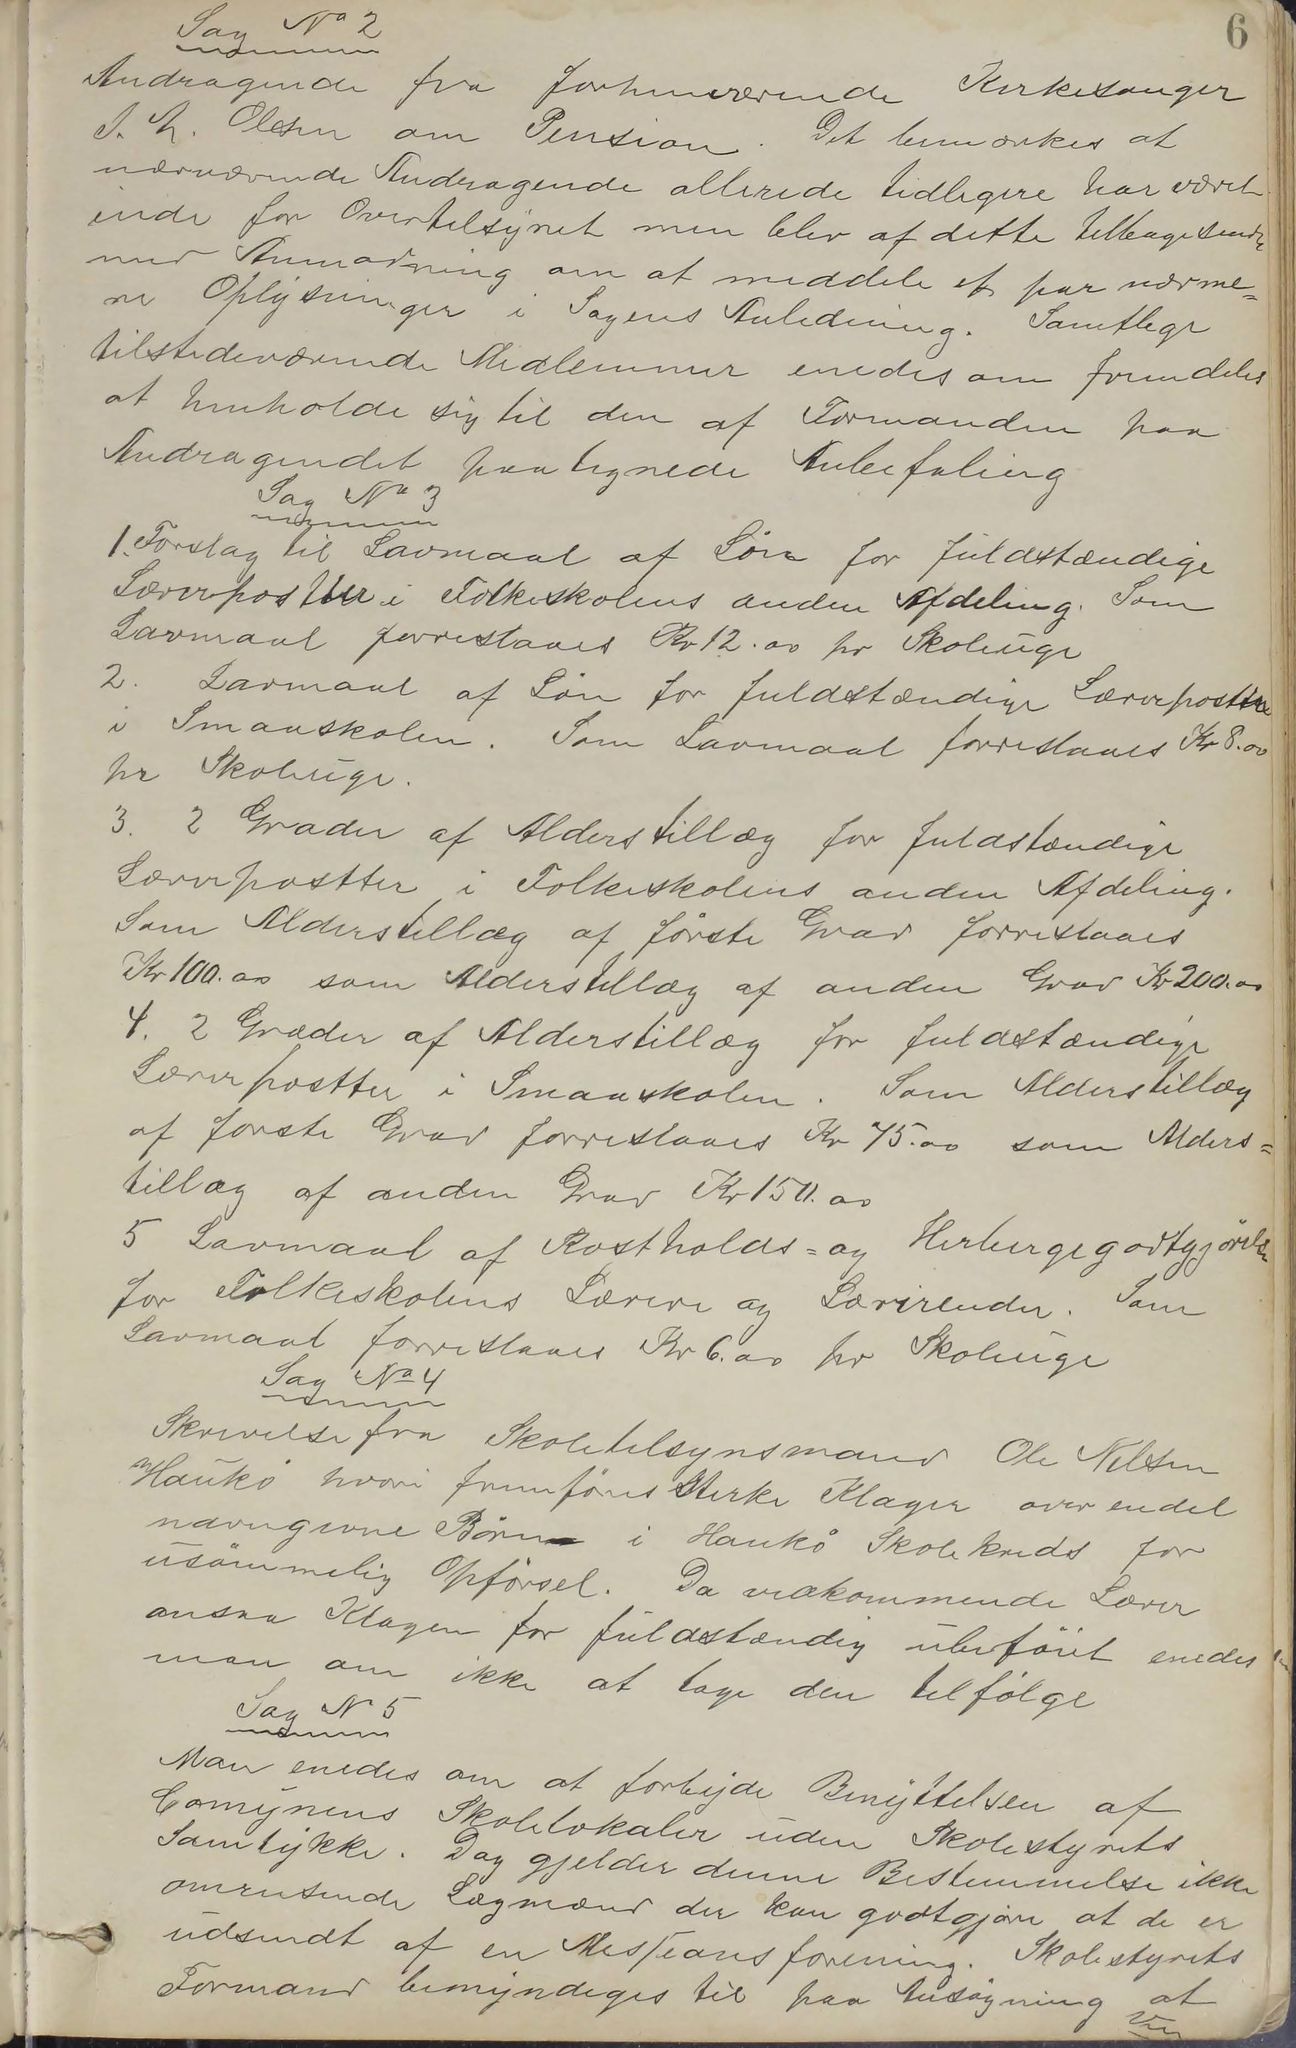 6
Sag No 2
Andragende fra forhenværende Kirkesanger
Olesen om Pension. Det bemærkes at
nærværende Andragende allerede tidligere har været
inde for Overtilsynet men blev af dette tilbagesendt
med Anmodning om at meddele et par nærme=
re Oplysninger i Sagens Anledning. Samtlige
tilstedeværende Medlemmer enedes om fremdeles
at henholde sig til den af Formanden paa
Andragendet paategnede Anbefaling
Sag No 3
1. Forslag til Lavmaal af Løn for fuldstændige
Lærerposter i Folkeskolens anden Afdeling. Som
Lavmaal forreslaaes Kr 12.00 pr Skoleuge
2. Lavmaal af Løn for fuldstændige Lærerposter
i Smaaskolen. Som Lavmaal forreslaaes Kr 8.00
pr Skoleuge.
3. 2 Grader af Alderstillæg for fuldstændige
Lærerpostter i Folkeskolens anden Afdeling.
Som Alderstillæg af første Grad forreslaaes
Kr 100.00 som Alderstillæg af anden Grad Kr 200.00
4. 2 Grader af Alderstillæg for fuldstændige
Lærerpostter i Smaaskolen. Som Alderstillæg
af første Grad forreslaaes Kr 75.00 som Alders=
tillæg af anden Grad Kr 150.00
5 Lavmaal af Kostholds= og Herbergegodtgjørelse
for Folkeskolens Lærere og Lærirender. Som
Lavmaal forreslaaes Kr 6.00 pr Skoleuge
Sag No 4
Skrivelse fra Skoletilsynsmand Ole Nilsen
Haukø hvori fremføres Sterke Klager over endel
navngivne Børn i Haukø Skolekreds for
usømmelig Opførsel. Da vedkommende Lærer
ansaa Klagen for fuldstændig ubeføiet enedes
man om ikke at tage den tilfølge
Sag N 5
Man enedes om at forbyde Benyttelsen af
Comynens Skolelokaler uden Skolestyrets
Samtykke. Dog gjelder denne Bestemmelse ikke
omreisende Lægmænd der kan godtgjøre at de er
udsendt af en Missionsforening. Skolestyrets
Formand bemyndiges til paa Ansøgning at